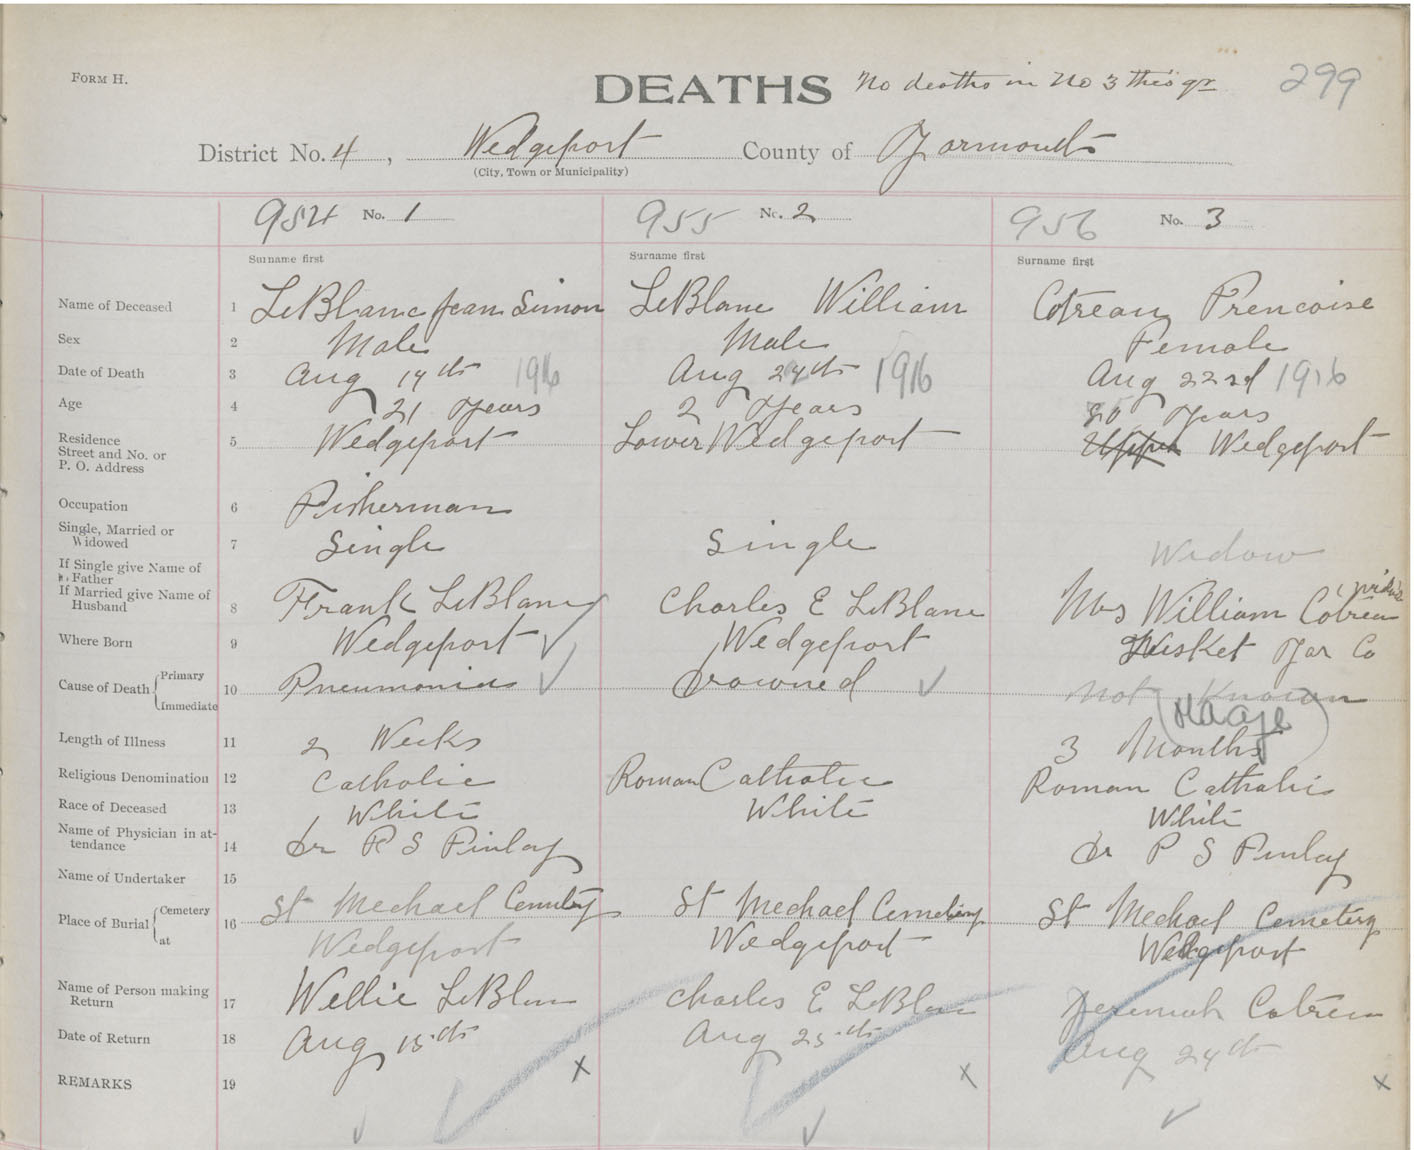 FORM H.
DEATHS No deaths in No 3 this yr 299
District No. 4, Wedgeport County of Yarmouth
(City, Town or Municipality)
954 No. 1 955 No. 2 956 No. 3
Surname first Surname first Surname first
Name of Deceased 1 LeBlanc Jean Simon LeBlanc William Cotreau Frencoise
Sex 2 Male Male Female
Date of Death 3 Aug 14th 1916 Aug 24th 1916 Aug 22nd 1916
Age 4 21 Years 2 Years 80 Years
Residence
Street and No. or
P. O. Address 5 Wedgeport Lower Wedgeport Upper Wedgeport
Occupation 6 Fisherman
Single, Married or
Widowed 7 Single Single Widow
If Single give Name of
Father
If Married give Name of
Husband 8 Frank LeBlanc Charles E LeBlanc Mrs William Cotreau
Where Born 9 Wedgeport Wedgeport Tusket Yar Co
Cause of Death { Primary
Immediate 10 Pneumonia Drowned Not Known
Length of Illness 11 2 Weeks 3 Months
Religious Denomination 12 Catholic Roman Catholic Roman Catholic
Race of Deceased 13 White White White
Name of Physician in at-
tendance 14 Dr P S Finlay Dr P S Finlay
Name of Undertaker 15
Place of Burial { Cemetery
at 16 St Mechael Cemetery St Mechael Cemetery St Mechael Cemetery
Wedgeport Wedgeport Wedgeport
Name of Person making
Return 17 Wellie LeBlanc Charles E LeBlanc Jeremiah Cotreau
Date of Return 18 Aug 15th Aug 25th Aug 24th
REMARKS 19 x x x